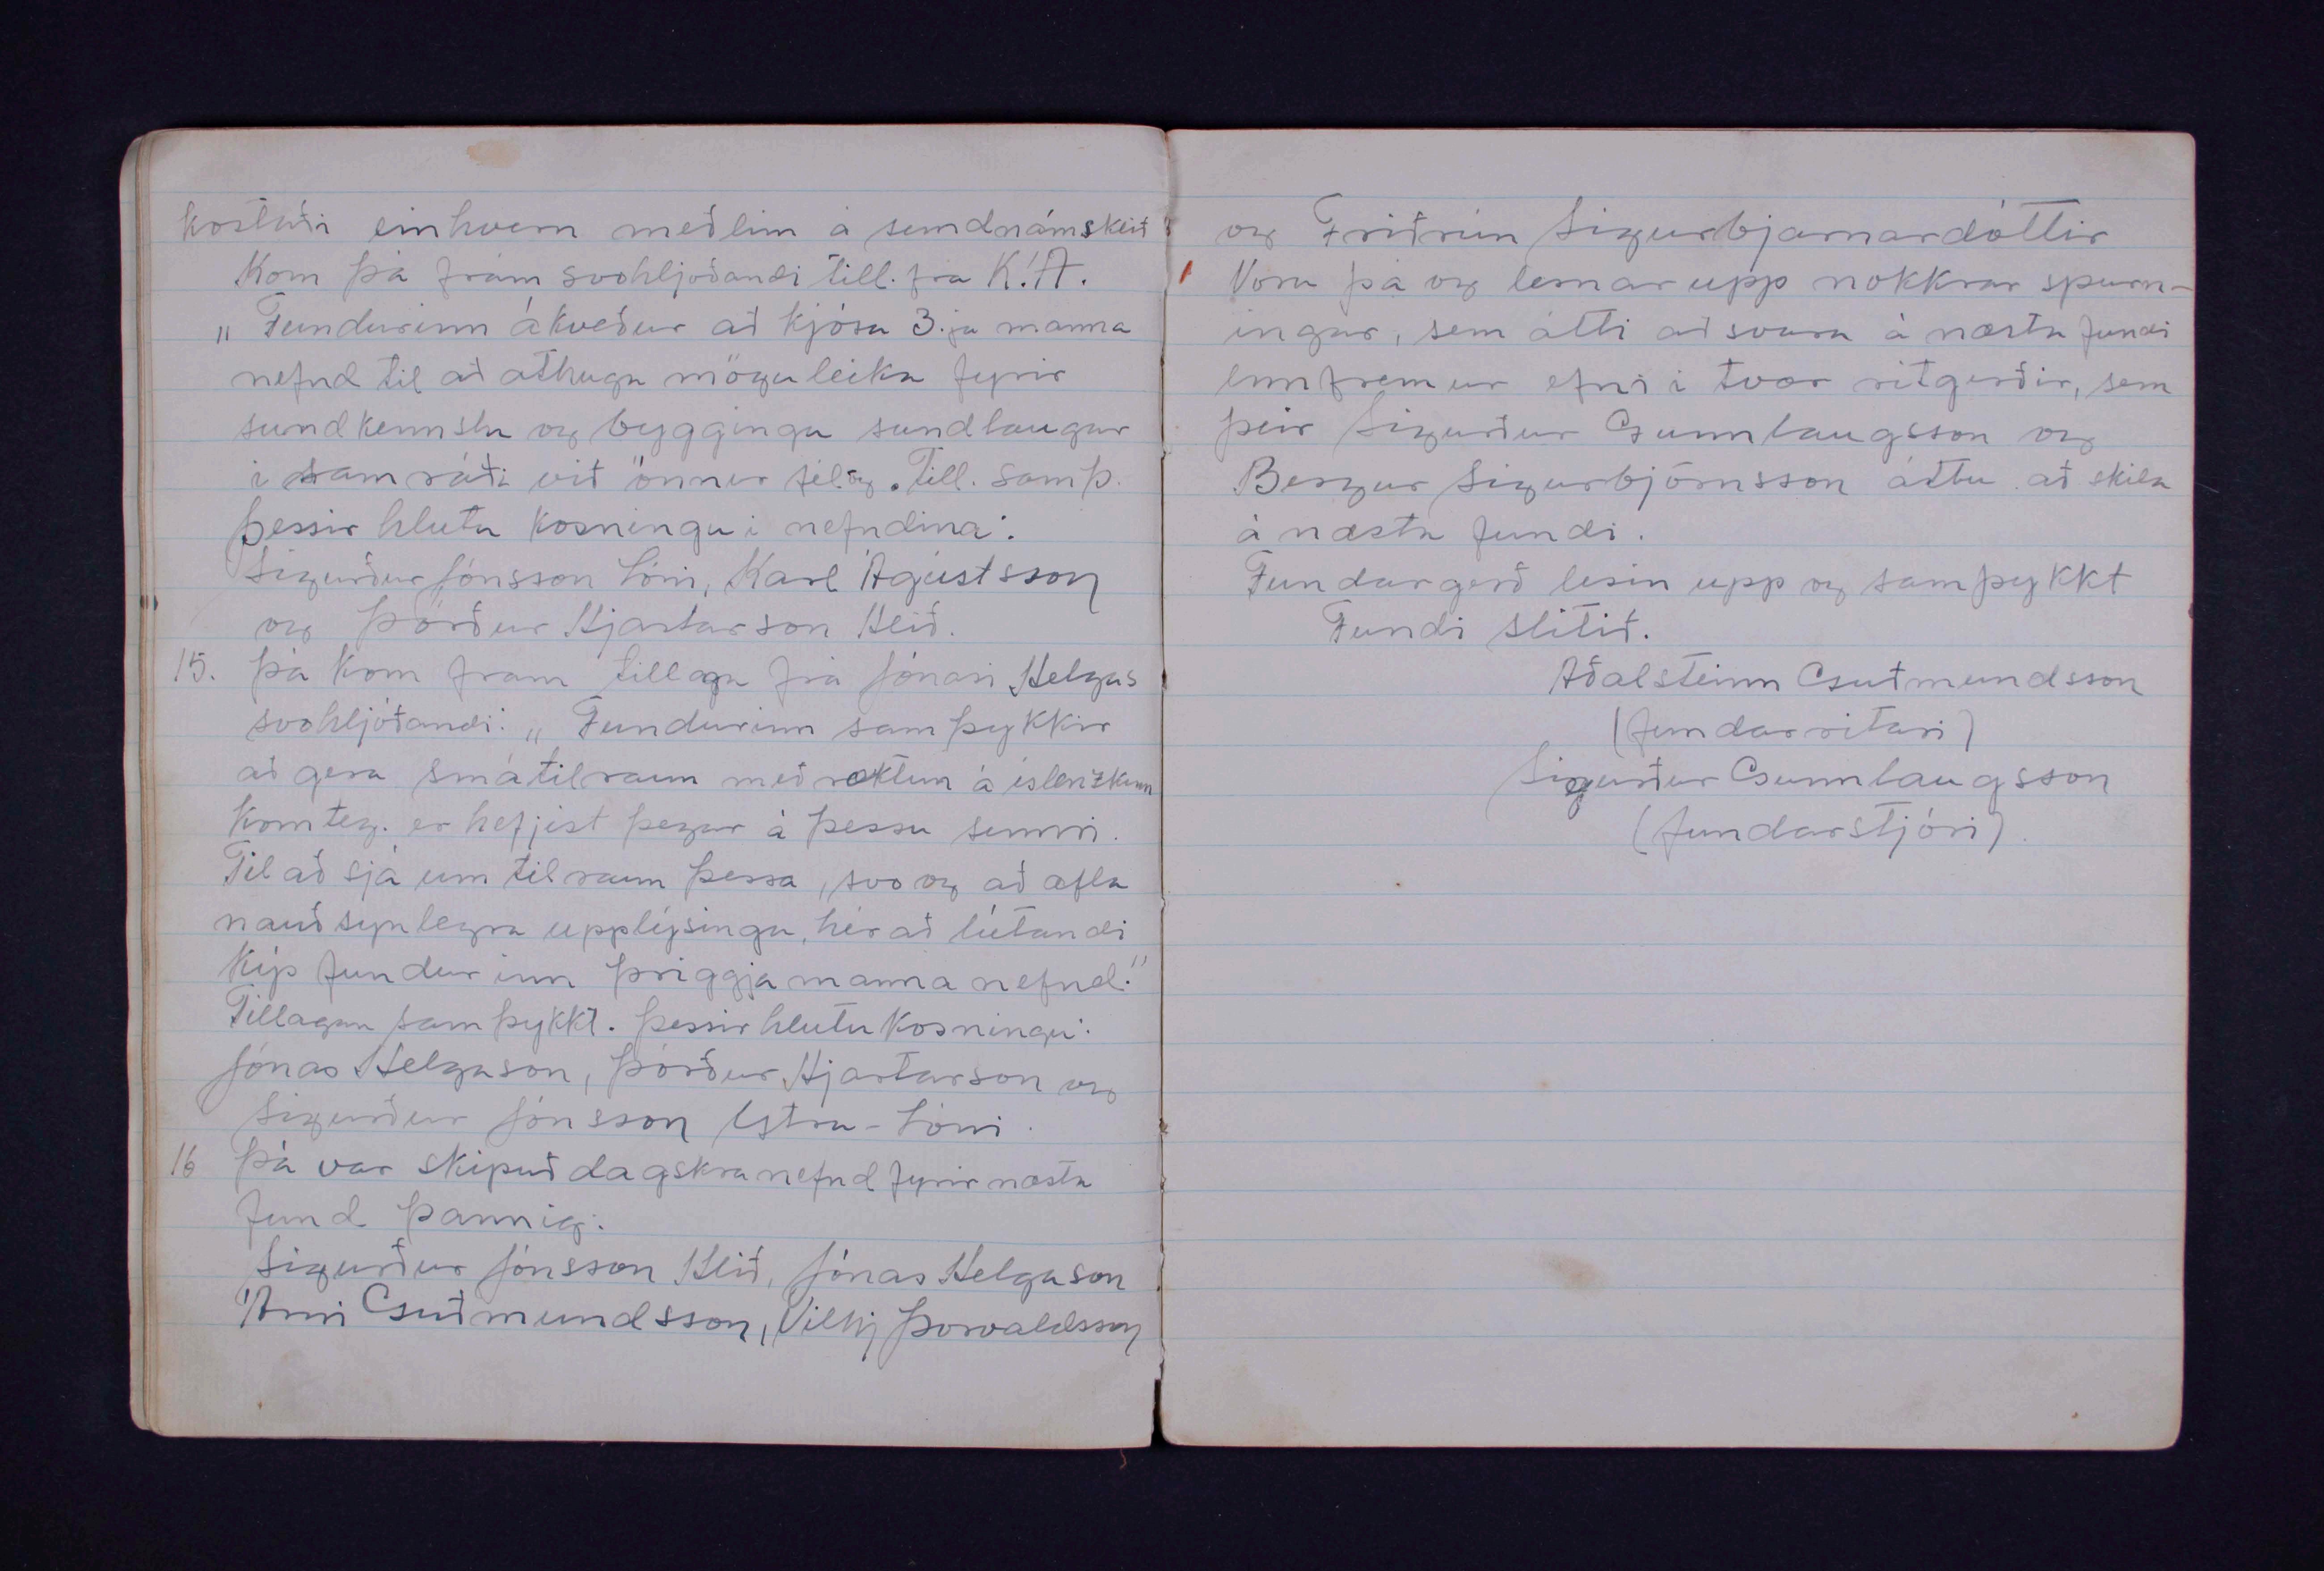 kostaði einhvern meðlim á sundnámskeið"
Kom þá fram svohljóðandi till. frá K.Á.
„ Fundurinn ákveður að kjósa 3. ja manna
nefnd til að athuga möguleika fyrir
sundkennslu og byggingu sundlaugar
í samráði við önnur félög. Till. samþ.
Þessir hlutu kosningu í nefndina:
Sigurður Jónsson Lóni, Karl Ágústsson
og Þórður Hjartarson Hlíð.
15. Þá kom fram tillaga frá Jónasi Helgas
svohljóðandi: „ Fundurinn samþykkir
að gera smá tilraun með ræktun á íslenzkum
korn teg. er hefjist þegar á þessu sumri.
Til að sjá um tilraun þessa, svo og að afla
nauðsynlegra upplýsinga, hér að lútandi
kýs fundurinn þriggja manna nefnd."
Tillagan samþykkt. Þessir hlutu kosningu:
Jónas Helgason, Þórður Hjartarson og
Sigurður Jónsson Ystra-Lóni.
16 Þá var skipuð dagskránefnd fyrir næsta
fund þannig:
Sigurður Jónsson Hlíð, Jónas Helgason
Árni Guðmundsson, Vilhj Þorvaldsson
og Friðrún Sigurbjarnardóttir
Voru þá og lesnar upp nokkrar spurn-
ingar, sem átti að svara á næsta fundi
ennfremur efni í tvær ritgerðir, sem
þeir Sigurður Gunnlaugsson og
Bergur Sigurbjörnsson áttu að skila
á næsta fundi.
Fundargerð lesin upp og samþykkt
Fundi slitið.
Aðalsteinn Guðmundsson
(fundarritari)
Sigurður Gunnlaugsson
(fundarstjóri).